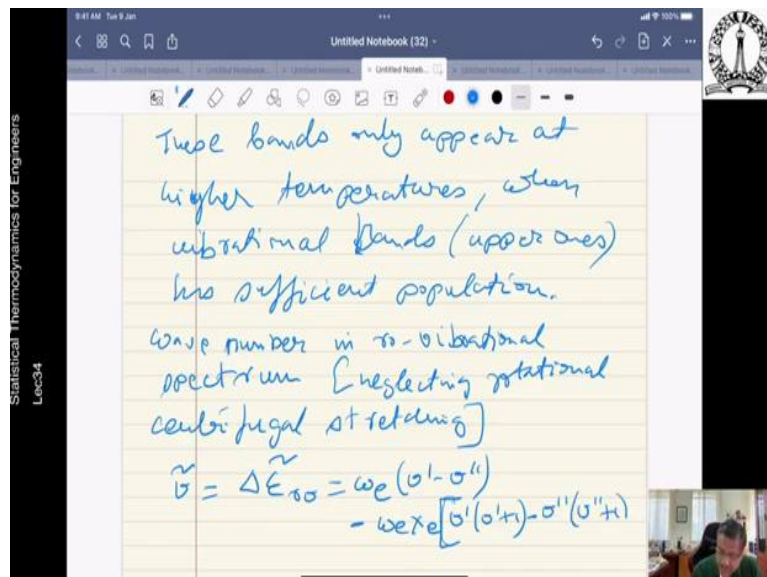 9:41 AM Tue 9 Jan
100%
Untitled Notebook (32)
Untitled Noteb...
Statistical Thermodynamics for Engineers
Lec34
These bands only appear at
higher temperatures, when
vibrational bands (upper ones)
has sufficient population.
wave number in ro-vibrational
spectrum [neglecting rotational
centrifugal stretching]
ṽ = Δε̃ᵣᵥ = ωe (v' - v'')
- ωexe[v'(v'+1) - v''(v''+1)